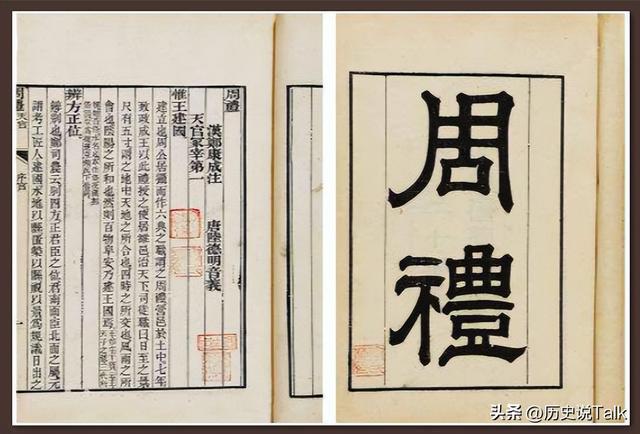 周禮
漢鄭康成注 唐陸德明音義
天官冢宰第一
惟王建國
建立也周公居攝而作六典之職謂之周禮營邑於土中七年
致政成王以此禮授之使居雒邑治天下司徒職曰日至之景
尺有五寸謂之地中天地之所合也四時之所交也風雨之所
會也陰陽之所和也然則百物阜安乃建王國焉
辨方正位
辨别也鄭司農云别四方正君臣之位君南面臣北面之屬元
謂考工匠人建國水地以縣置槷以縣眡以景爲規識日出之
周禮 天官 序官 一
周禮
头条 @历史说Talk